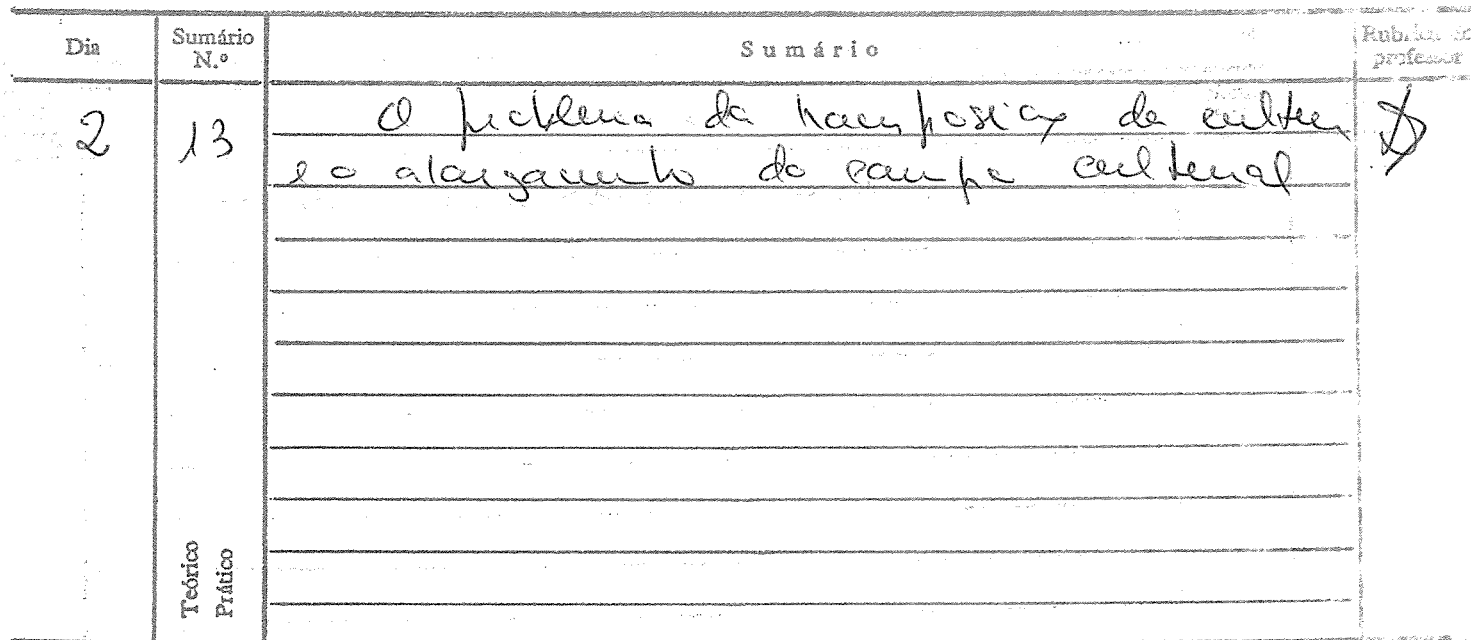 Dia Sumário N.º Sumário Rubrica do professor
2 13 O problema da transposição da cultura
e o alargamento do campo cultural
Teórico
Prático